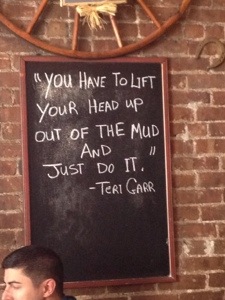 "You Have To Lift
Your Head up
out of the Mud
And
Just Do It."
-Teri Garr